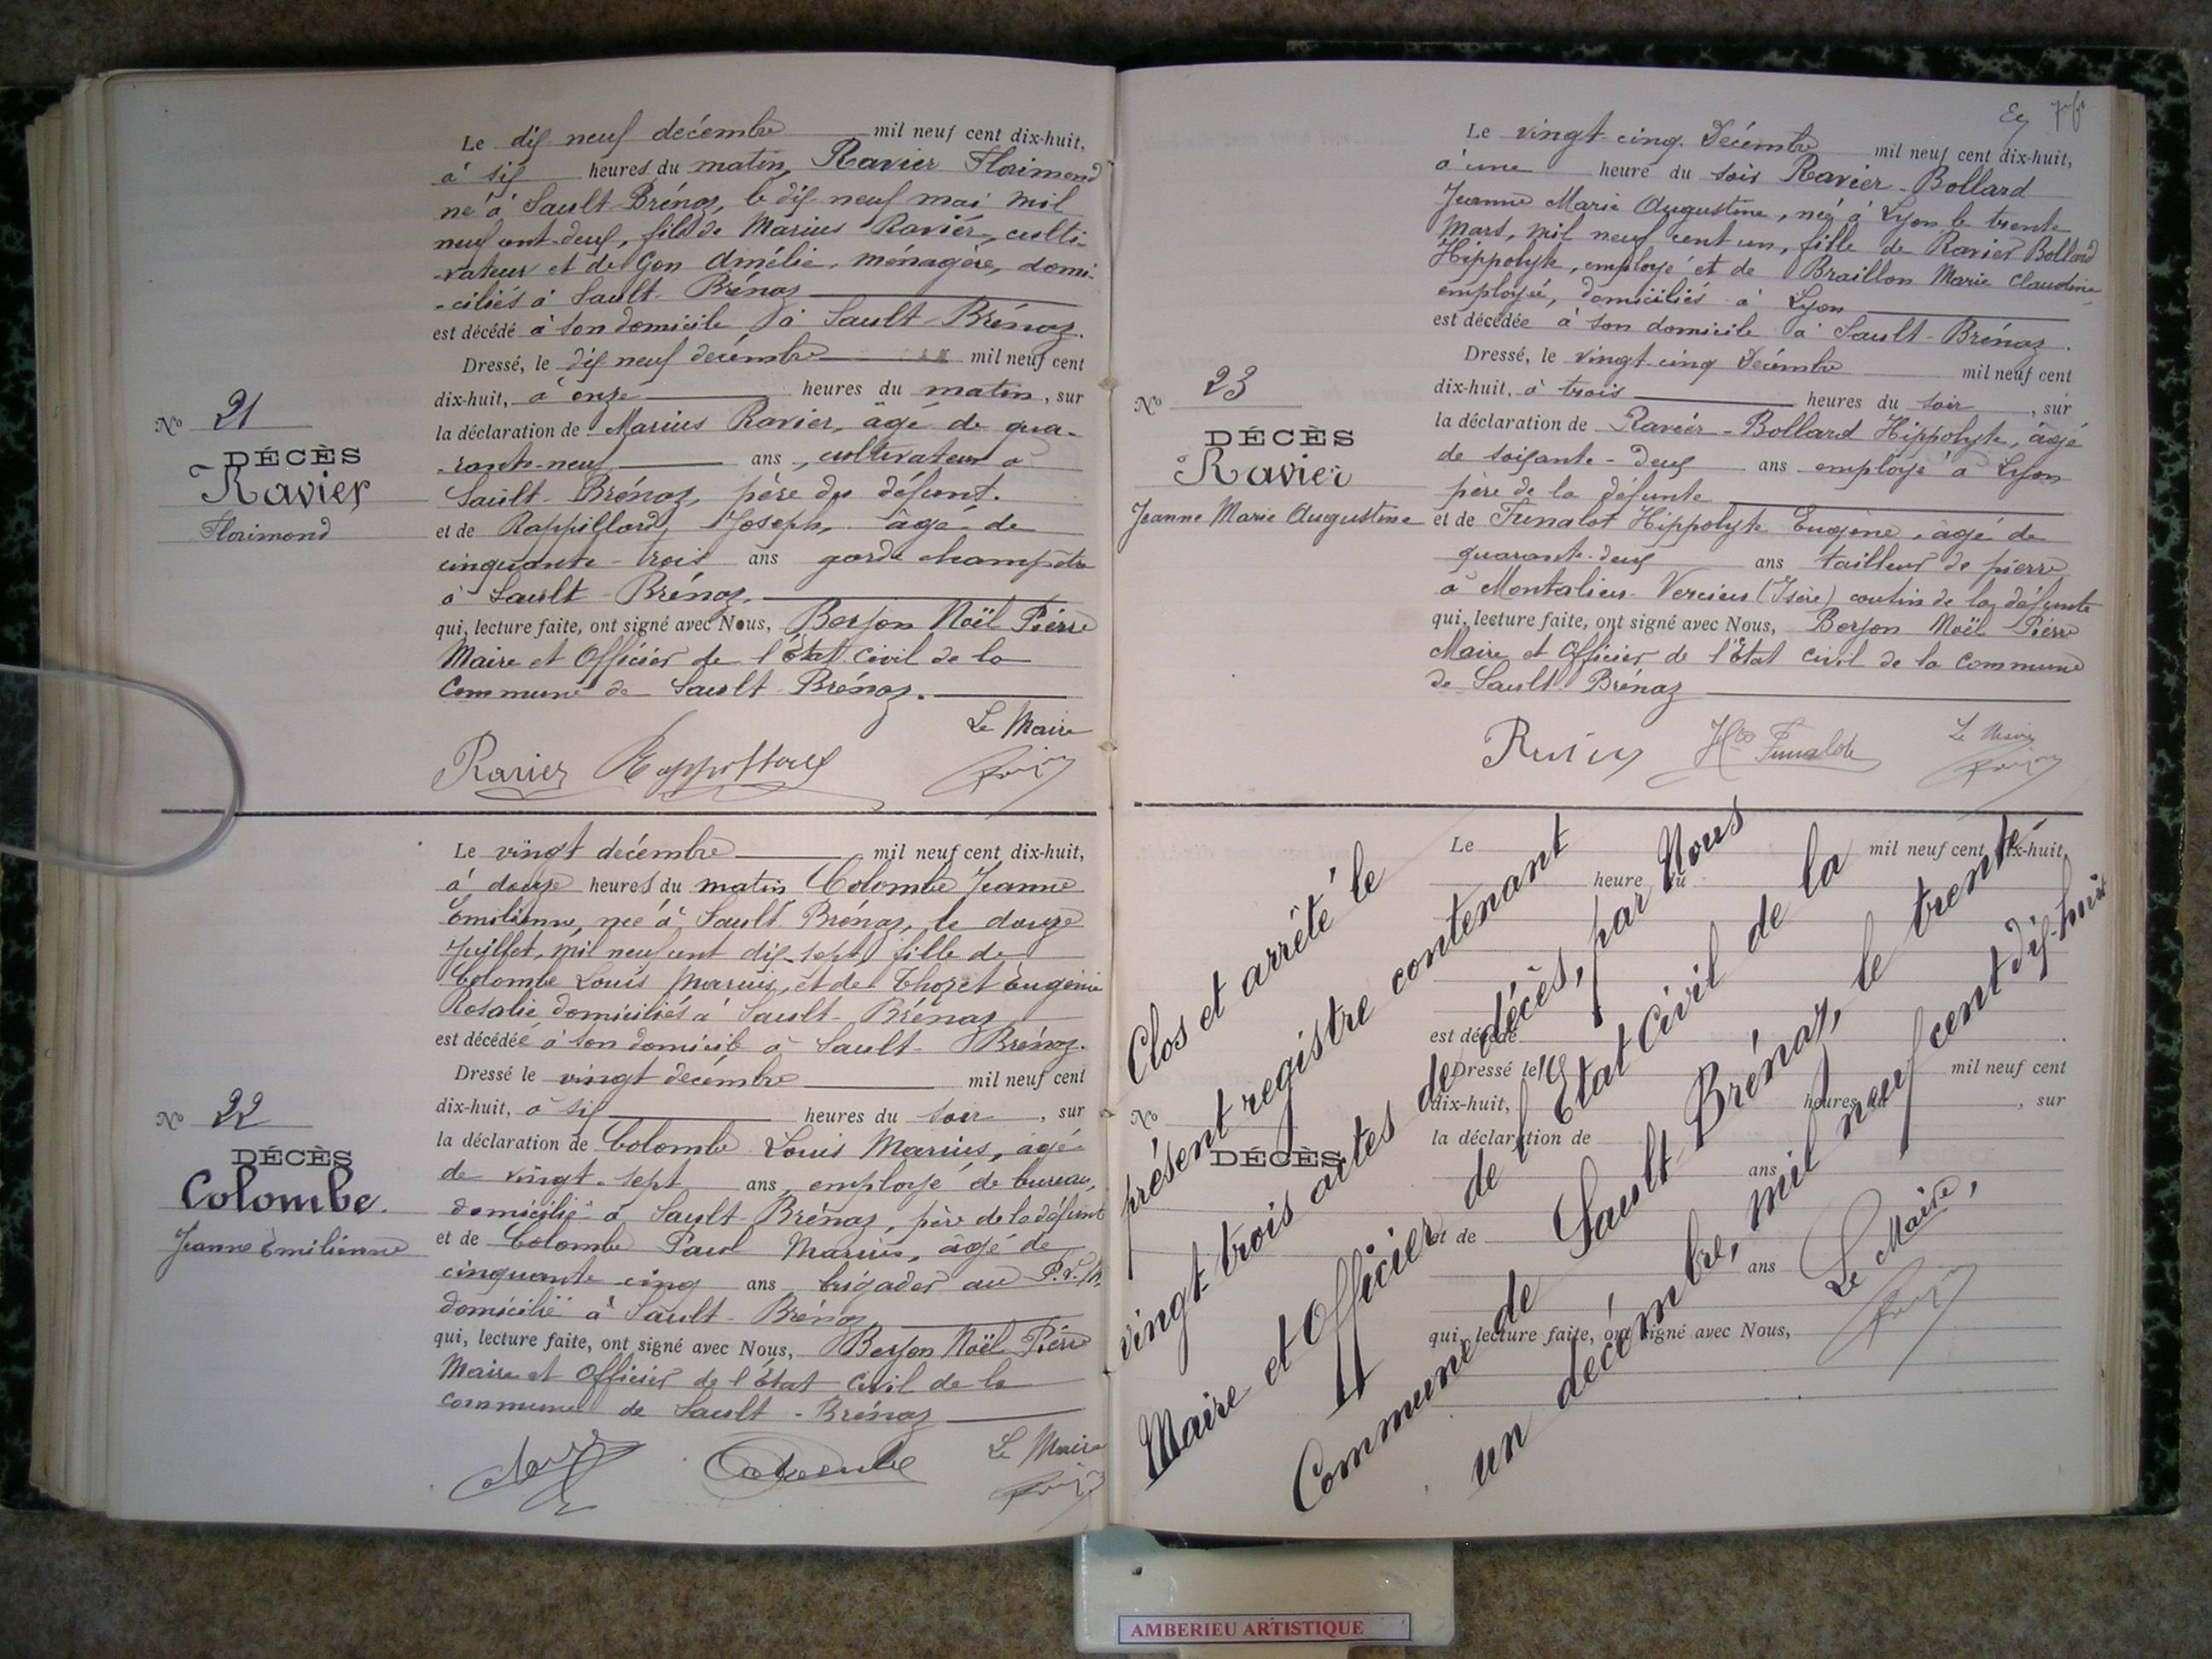 Le dix neuf décembre mil neuf cent dix-huit,
à six heures du matin, Ravier Florimond
né à Sault-Brénaz, le dix-neuf mai mil
neuf cent-deux, fils de Marius Ravier, culti-
-vateur et de Gon Amélie, ménagère, domi-
-ciliés à Sault-Brénaz
est décédé à son domicile à Sault-Brénaz.
Dressé, le dix neuf décembre mil neuf cent
dix-huit, à onze heures du matin, sur
la déclaration de Marius Ravier, âgé de qua-
-rante-neuf ans, cultivateur à
Sault-Brénaz, père du défunt.
et de Rappillard, Joseph, âgé de
cinquante-trois ans garde champêtre
à Sault-Brénaz.
qui, lecture faite, ont signé avec Nous, Berjon Noël Pierre
Maire et Officier de l'État civil de la
Commune de Sault-Brénaz.
Le Maire
Ravier Rappillard
No 21
DÉCÈS
Ravier
Florimond
Le vingt décembre mil neuf cent dix-huit,
à douze heures du matin Colombe Jeanne
Emilienne, née à Sault-Brénaz, le douze
Juillet, mil neuf cent dix-sept, fille de
Colombe Louis Marius, et de Thozet Eugénie
Rosalie domiciliés à Sault-Brénaz
est décédée à son domicile à Sault-Brénaz.
Dressé le vingt décembre mil neuf cent
dix-huit, à six heures du soir, sur
la déclaration de Colombe Louis Marius, âgé
de vingt-sept ans, employé de bureau,
domicilié à Sault-Brénaz, père de la défunte
et de Colombe Paul Marius, âgé de
cinquante cinq ans brigadier au P.L.M.
domicilié à Sault-Brénaz
qui, lecture faite, ont signé avec Nous, Berjon Noël Pierre
Maire et Officier de l'État civil de la
commune de Sault-Brénaz
Le Maire
Colombe
No 22
DÉCÈS
Colombe.
Jeanne Emilienne
Le vingt-cinq Décembre mil neuf cent dix-huit,
à une heure du soir Ravier-Bollard
Jeanne Marie Augustine, née à Lyon le trente
Mars, mil neuf cent un, fille de Ravier Bollard
Hippolyte, employé et de Braillon Marie Claudine
employée, domiciliés à Lyon
est décédée à son domicile à Sault-Brénaz.
Dressé, le vingt cinq Décembre mil neuf cent
dix-huit, à trois heures du soir, sur
la déclaration de Ravier-Bollard Hippolyte, âgé
de soixante-deux ans employé à Lyon
père de la défunte
et de Funalot Hippolyte Eugène, âgé de
quarante-deux ans tailleur de pierre
à Montalieu-Vercieu (Isère) cousin de la défunte
qui, lecture faite, ont signé avec Nous, Berjon Noël Pierre
Maire et Officier de l'État civil de la Commune
de Sault Brénaz
Le Maire
No 23
DÉCÈS
Ravier
Jeanne Marie Augustine
Le mil neuf cent dix-huit,
heure du
est décédé
Dressé le mil neuf cent
dix-huit, heures du , sur
la déclaration de
ans
et de
ans
qui, lecture faite, ont signé avec Nous,
No
DÉCÈS
Clos et arrêté le
présent registre contenant
vingt-trois actes de décès, par Nous
Maire et Officier de l'Etat Civil de la
Commune de Sault-Brénaz, le trente-
un décembre, mil neuf cent dix-huit
Le Maire,
AMBERIEU ARTISTIQUE